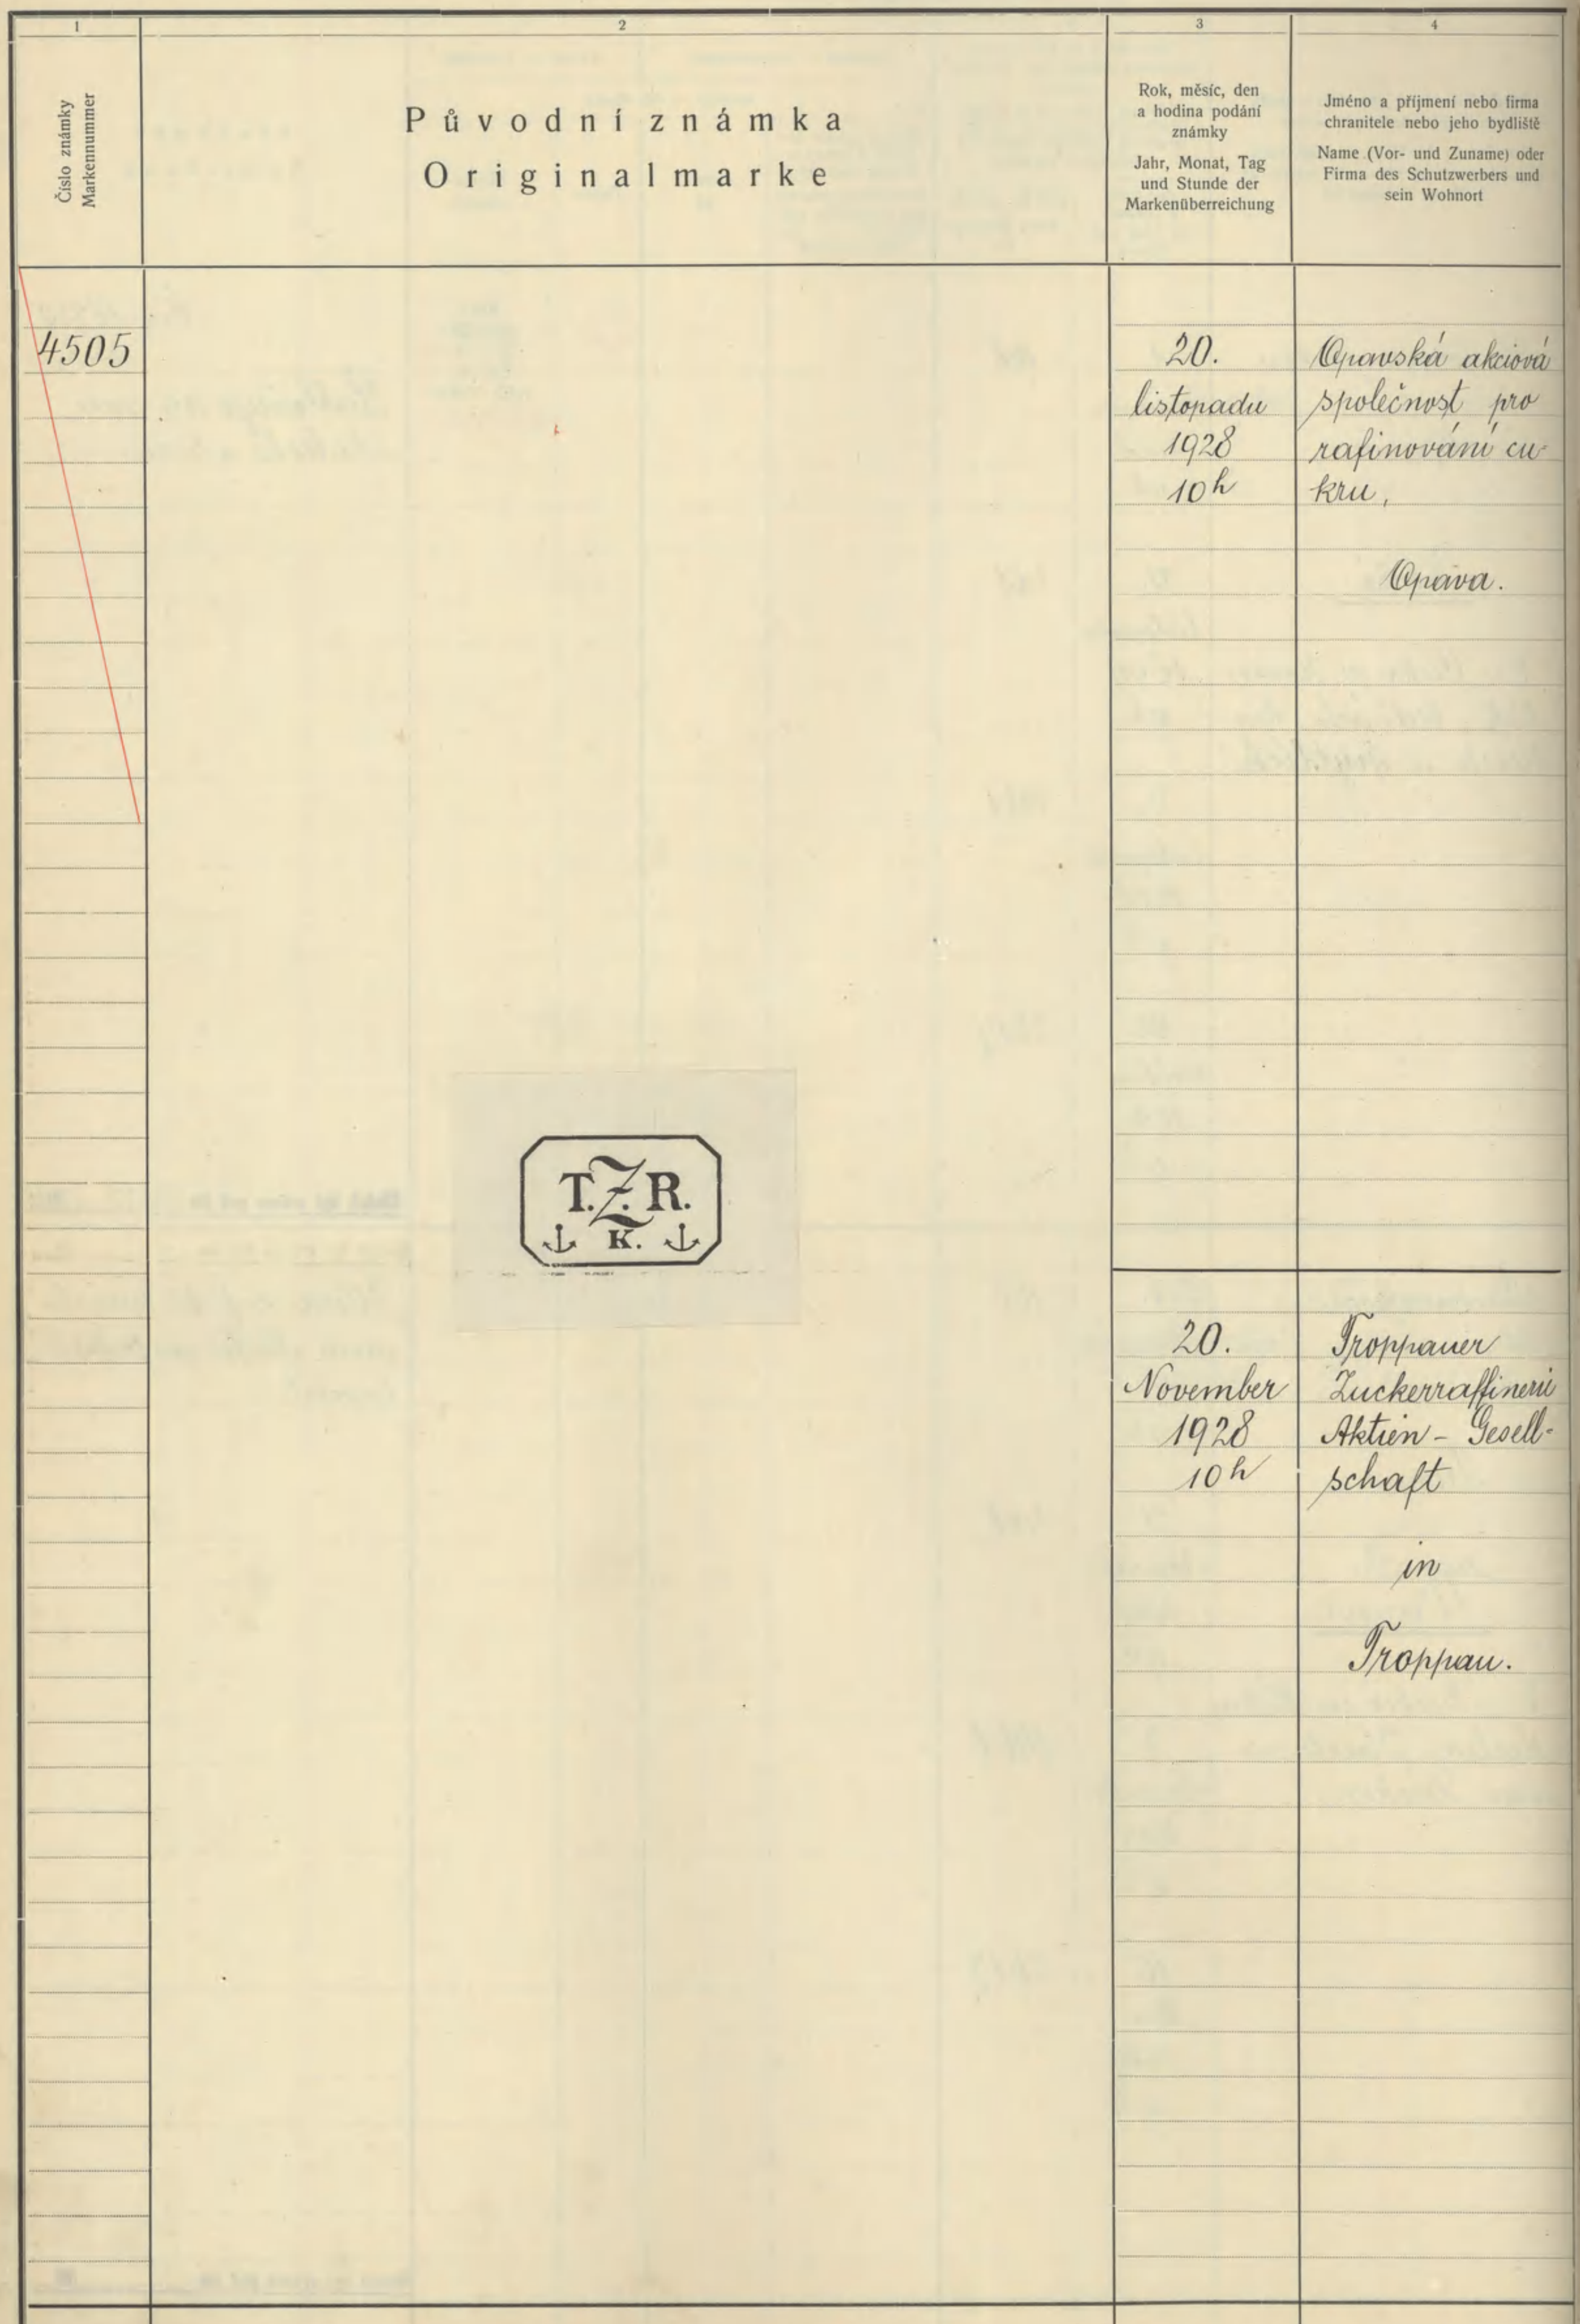 1
2
3
4
Číslo známky
Markennummer
Původní známka
Originalmarke
Rok, měsíc, den
a hodina podání
známky
Jahr, Monat, Tag
und Stunde der
Markenüberreichung
Jméno a příjmení nebo firma
chranitele nebo jeho bydliště
Name (Vor- und Zuname) oder
Firma des Schutzwerbers und
sein Wohnort
4505
20.
listopadu
1928
10h
Opavská akciová
společnost pro
rafinování cu-
kru,
Opava.
T.Z.R.
K.
20.
November
1928
10h
Troppauer
Zuckerraffinerie
Aktien-Gesell-
schaft
in
Troppau.